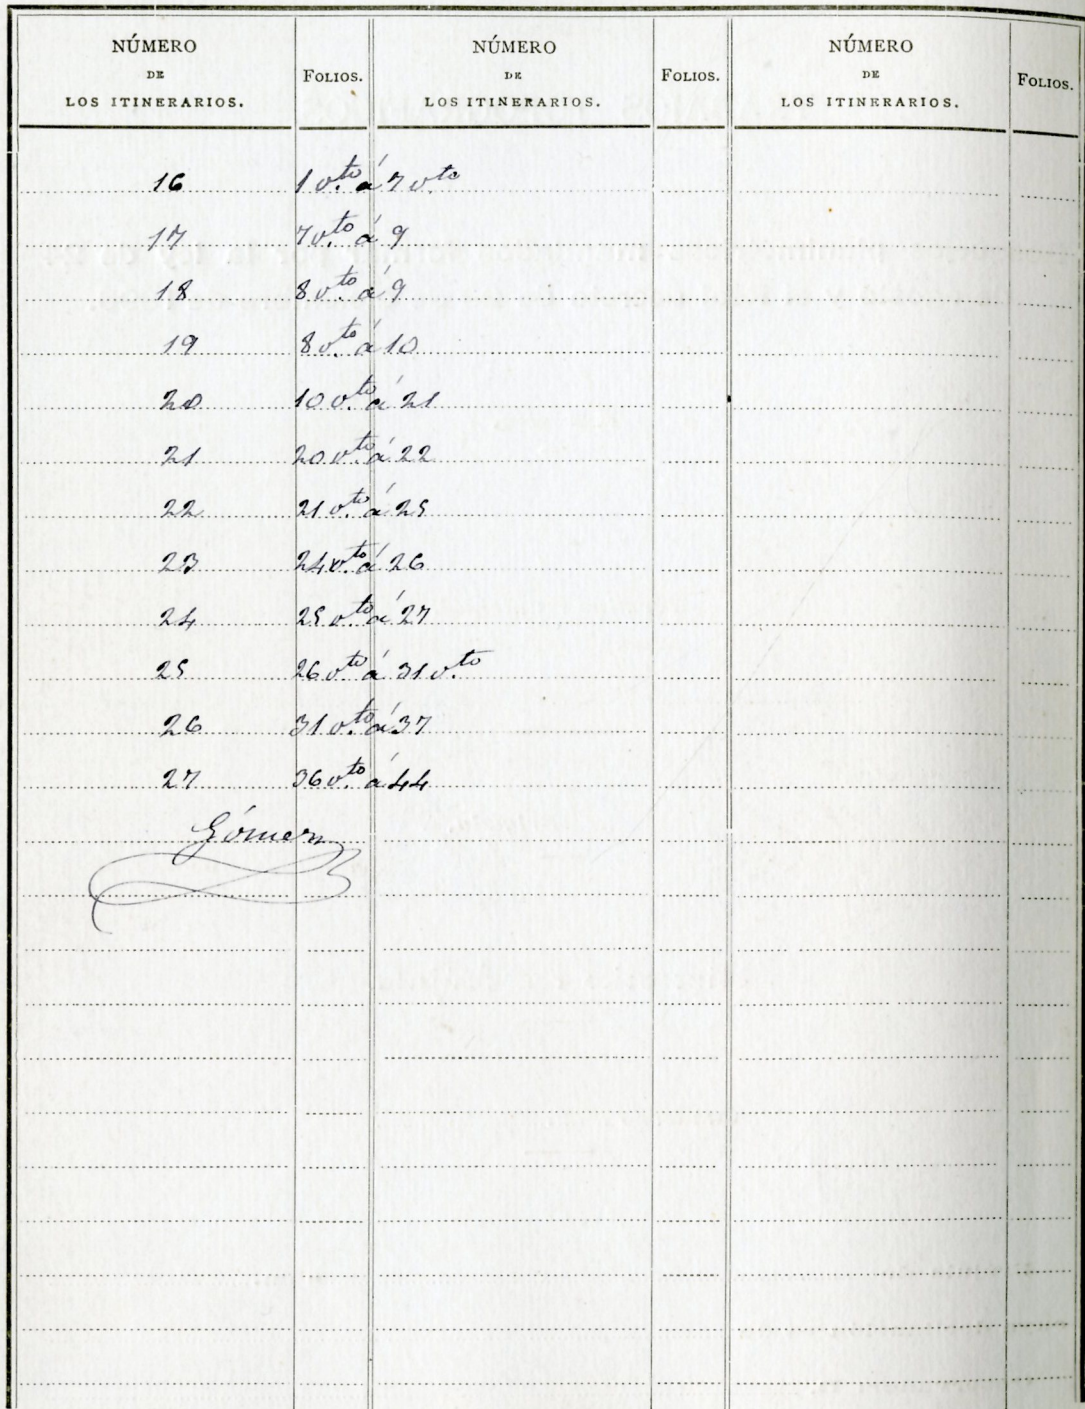 NÚMERO DE LOS ITINERARIOS. FOLIOS. NÚMERO DE LOS ITINERARIOS. FOLIOS. NÚMERO DE LOS ITINERARIOS. FOLIOS.
16 1 v.to á 7 v.to
17 7 v.to á 9
18 8 v.to á 9
19 8 v.to á 10
20 10 v.to á 21
21 20 v.to á 22
22 21 v.to á 25
23 24 v.to á 26
24 25 v.to á 27
25 26 v.to á 31 v.to
26 31 v.to á 37
27 36 v.to á 44
Gómez